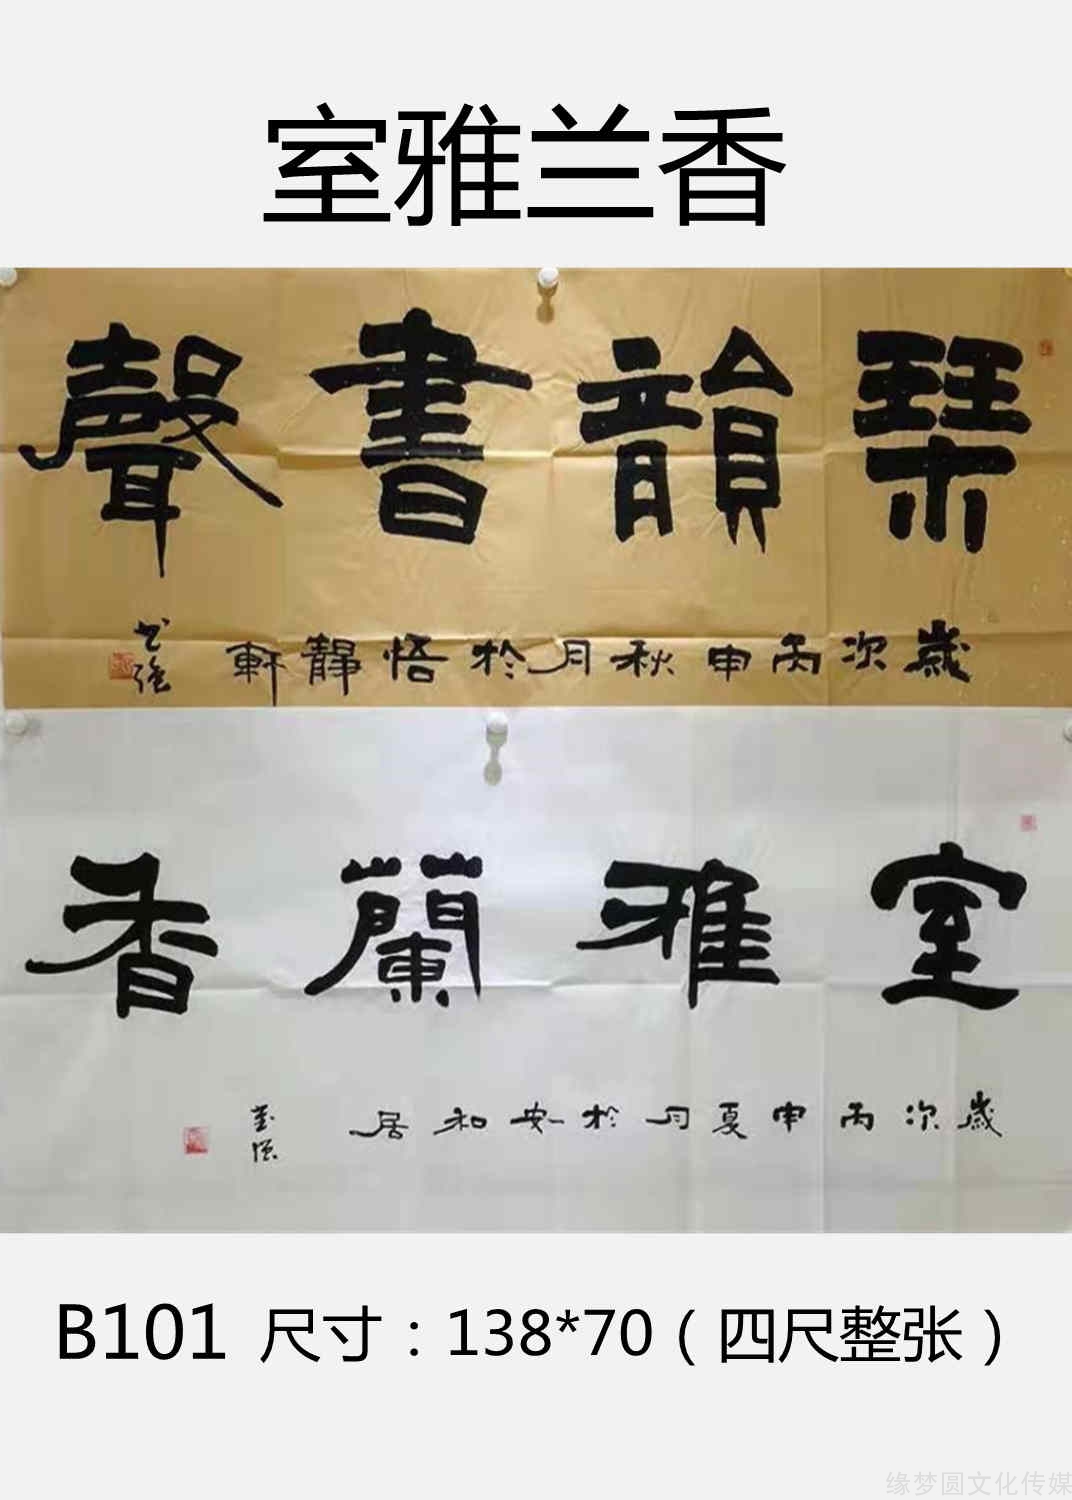 室雅兰香
琴韻書聲
歲次丙申秋月於悟靜軒
室雅蘭香
歲次丙申夏月於安和居
B101 尺寸：138*70（四尺整张）
缘梦圆文化传媒